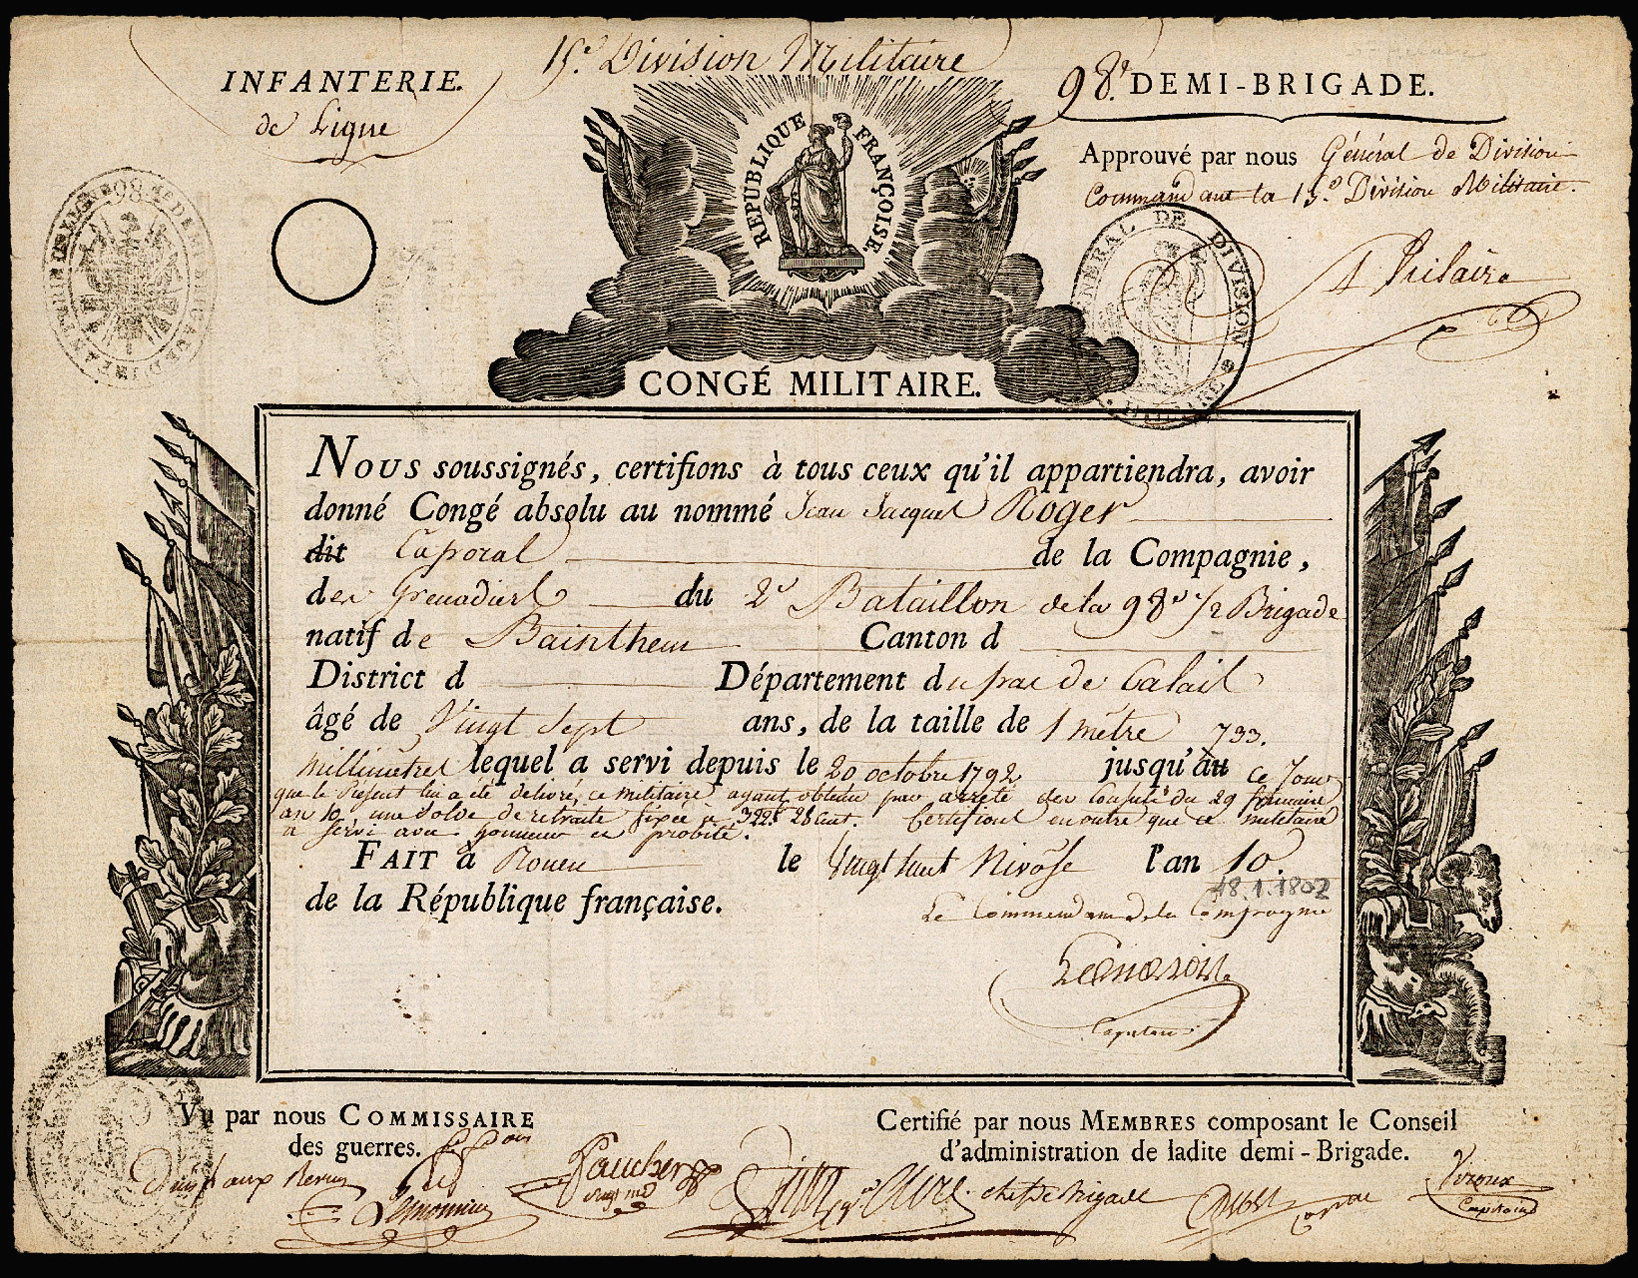 15.e Division Militaire
INFANTERIE.
de Ligne
98.e DEMI-BRIGADE.
RÉPUBLIQUE FRANÇOISE.
Approuvé par nous Général de Division
Commandant la 15.e Division Militaire.
GÉNÉRAL DE DIVISION
hilaire
CONGÉ MILITAIRE.
Nous soussignés, certifions à tous ceux qu'il appartiendra, avoir
donné Congé absolu au nommé Jean Jacques Roger
dit Caporal de la Compagnie,
des Grenadiers du 2e Bataillon de la 98e 1/2 Brigade
natif de Bainthem Canton d
District d Département du pas de Calais
âgé de Vingt sept ans, de la taille de 1 mètre 733.
millimètres lequel a servi depuis le 20 octobre 1792 jusqu'au ce Jour
que le Présent lui a été délivré, ce militaire ayant obtenu par arrêté des Consuls du 29 frimaire
an 10, une Solde de retraite fixée à 322f 28 Cent. Certifions en outre que ce militaire
a servi avec honneur et probité.
FAIT à Rouen le Vingt huit Nivôse l'an 10.
18.1.1802
de la République française.
Le Commandant de la Compagnie
Capitaine
Vu par nous COMMISSAIRE
des guerres.
Certifié par nous MEMBRES composant le Conseil
d'administration de ladite demi-Brigade.
aux Revues
Lemonnier
Faucher
chef de Brigade
Viroux
Capitaine